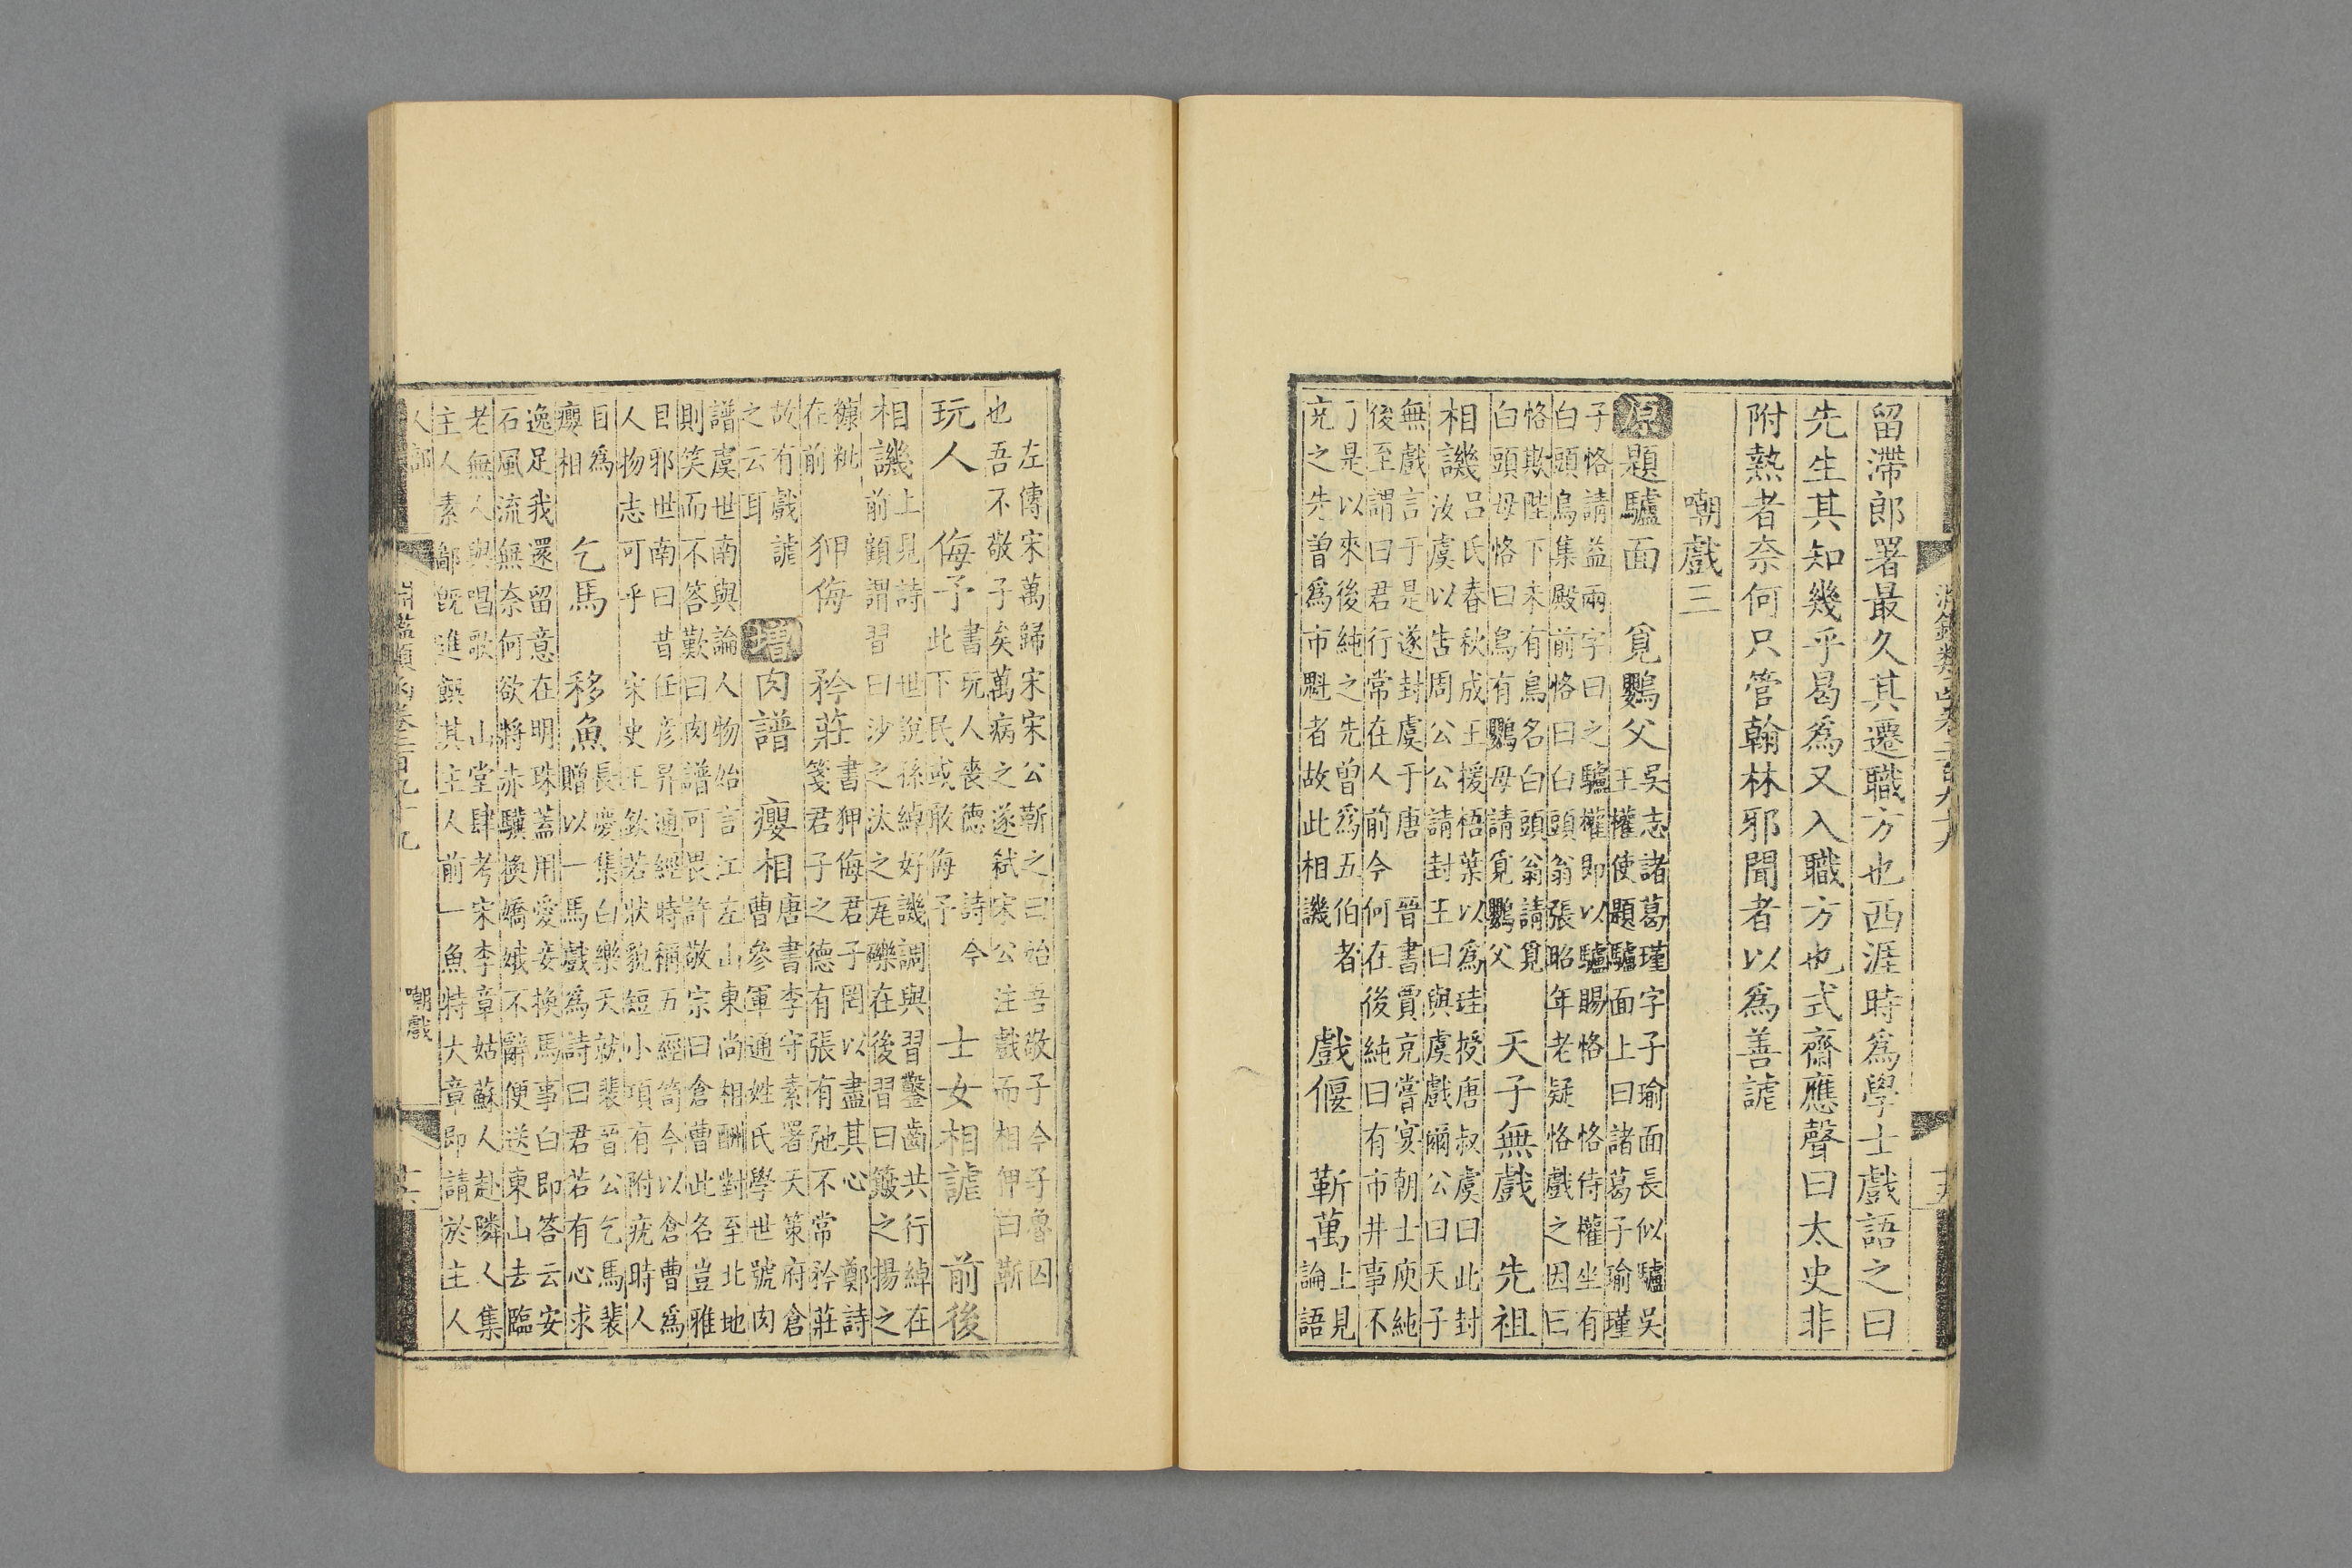 淵鑑類函卷二百九十九
留滯郎署最久其遷職方也西涯時爲學士戲語之曰
先生其知幾乎曷爲又入職方也式齋應聲曰太史非
附熱者奈何只管翰林邪聞者以爲善謔
嘲戲三
原題驢面 覓鸚父 吳志諸葛瑾字子瑜面長似驢吳
王權使題驢面上曰諸葛子瑜瑾
子恪請益兩字曰之驢權即以驢賜恪 恪侍權坐有
白頭烏集殿前恪曰白頭翁張昭年老疑恪戲之因曰
恪欺陛下未有鳥名白頭翁請覓
白頭母恪曰鳥有鸚母請覓鸚父 天子無戲 先祖
相譏 呂氏春秋成王援梧葉以爲珪授唐叔虞曰此封
汝虞以吿周公公請封王曰與虞戲爾公曰天子
無戲言于是遂封虞于唐 晉書賈充嘗宴朝士庾純
後至謂曰君行常在人前今何在後純曰有市井事不
了是以來後純之先曾爲五伯者
充之先曾爲市魁者故此相譏 戲偃 靳萬 上見
論語
也 左傳宋萬歸宋宋公靳之曰始吾敬子今子魯囚
吾不敬子矣萬病之遂弒宋公注戲而相狎曰靳
玩人 侮予 書玩人喪德 詩今
此下民或敢侮予 士女相謔 前後
相譏 上見詩 世說孫綽好譏調與習鑿齒共行綽在
前顧謂習曰沙之汰之瓦礫在後習曰簸之揚之
糠粃
在前 狎侮 矜莊 書狎侮君子罔以盡其心 鄭詩
箋君子之德有張有弛不常矜莊
故有戲謔
之云耳 增肉譜 癭相 唐書李守素署天策府倉
曹參軍通姓氏學世號肉
譜虞世南與論人物始言江左山東尚相酬對至北地
則笑而不答歎曰肉譜可畏許敬宗曰倉曹此名豈雅
目邪世南曰昔任彦昇通經時稱五經笥今以倉曹爲
人物志可乎 宋史王欽若狀貌短小項有附疣時人
目爲
癭相 乞馬 移魚 長慶集白樂天就裴晉公乞馬裴
贈以一馬戲爲詩曰君若有心求
逸足我還留意在明珠蓋用愛妾換馬事白即答云安
石風流無奈何欲將赤驥換嬌娥不辭便送東山去臨
老無人與唱歌 山堂肆考宋李章姑蘇人赴隣人集
主人素鄙旣進饌其主人前一魚特大章即請於主人
人部 淵鑑類函卷二百九十九 嘲戲